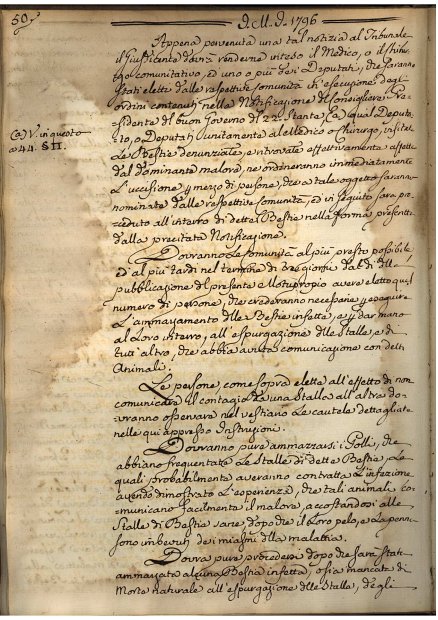 50
D. M. D. 1796
Appena pervenuta una tal notizia al Tribunale
il Giusdicente dovrà renderne inteso il Medico, o il Chirur-
go comunitativo, ed uno o più dei Deputati, che saranno
stati eletti dalle respettive Comunità in esecuzione degli
ordini contenuti nella Notificazione del Consigliere Pre-
sidente del buon Governo di 22. Stante (a) qual Deputa-
(a) V. in questo
a 44. §. II.
to, o Deputati unitamente al Medico o Chirurgo, visitel
Le Bestie denunziate, e ritrovate effettivamente affette
dal dominante malore, ne ordineranno immediatamente
L'uccisione per mezzo di persone, che a tale oggetto saranno
nominate dalle respettive Comunità, ed in seguito sarà pro-
ceduto all'interro di dette Bestie nella forma prescritta
dalla precitata Notificazione.
Dovranno le Comunità al più presto possibile,
ed al più tardi nel termine di tre giorni dal dì della
pubblicazione del presente Motuproprio avere eletto quel
numero di persone, che crederanno necessarie per eseguire
L'ammazzamento delle Bestie infette, e per dar mano
al Loro interro, all'espurgazione delle Stalle, e di
tutt'altro, che abbia avuta comunicazione con detti
Animali.
Le persone, come sopra elette all'effetto di non
comunicare il contagio da una Stalla all'altra do-
vranno osservare nel vestiario Le cautele dettagliate
nelle qui appresso Instruzioni.
Dovranno pure ammazzarsi i Polli, che
abbiano frequentate Le Stalle di dette Bestie, Le
quali probabilmente averanno contratta L'infezione
avendo dimostrato L'esperienza, che tali animali co-
municano facilmente il malore, accostandosi alle
Stalle di Bestie sane dopo che il Loro pelo, e La penna
sono imbevuti dei miasmi della malattia.
Dovrà pure procedersi dopo che sarà stata
ammazzata alcuna Bestia infetta, o sia mancata di
Morte naturale all'espurgazione delle Stalle, degli